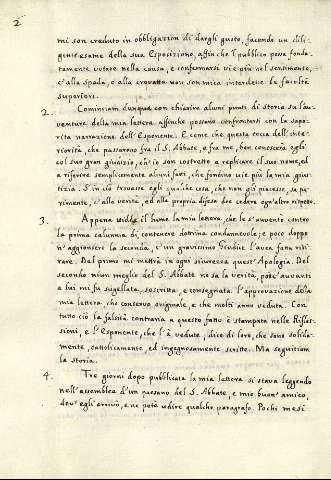 2
mi son creduto in obbligazion di dargli gusto, facendo un dili-
gente esame della sua Esposizione, affin che 'l pubblico possa fonda-
tamente votare nella causa, e confermarsi vie più nel sentimento,
c'alla spada, e alla crovatta non son mica interdette le facoltà
superiori.
2. Cominciam dunque con chiarire alcuni punti di storia su l'av-
venture della mia lettera affinchè possano confrontarsi con la sapo-
rita narrazione dell'Esponente. E come che questa tocca dell'inte-
riorità, che passarono fra il S. Abbate, e fra me, ben conoscerà egli
col suo gran giudizio, ch'io son costretto a replicare il suo nome, ed
a riferire semplicemente alcuni fatti, che fondino vie più la mia gius-
tizia. S'in ciò trovasse egli qualche cosa, che non gli piacesse, sa pu-
rimente, c'alla verità, ed alla propria difesa dee cedere ogn'altro rispetto.
3. Appena vidde il lume la mia lettera, che le s'avventò contro
la prima calunnia di contenere dottrina condannevole; e poco doppo
n'aggionsero la seconda, c'un gravissimo Giudice l'avea fatta riti-
rare. Del primo mi mettrà in ogni sicurezza quest'Apologia. Del
secondo niun meglio del S. Abbate ne sa la verità, poic'avvanti
a lui mi fu sugellata, soscritta, e consegnata l'approvazione della
mia lettera, che conservo originale, e che molti anno veduta. Con
tutto ciò la falsità contraria a questo fatto è stampata nelle Rifles-
sioni, e l'Esponente, che l'à vedute, dice di loro, che sono solida-
mente, cattolicamente, ed ingegnosamente scritte. Ma seguitiam
la storia.
4. Tre giorni dopo pubblicata la mia lettera si stava leggendo
nell'assemblea d'un paesano del S. Abbate, e mio buon'amico,
dov'egli arrivò, e ne potè udire qualche paragrafo. Pochi mesi